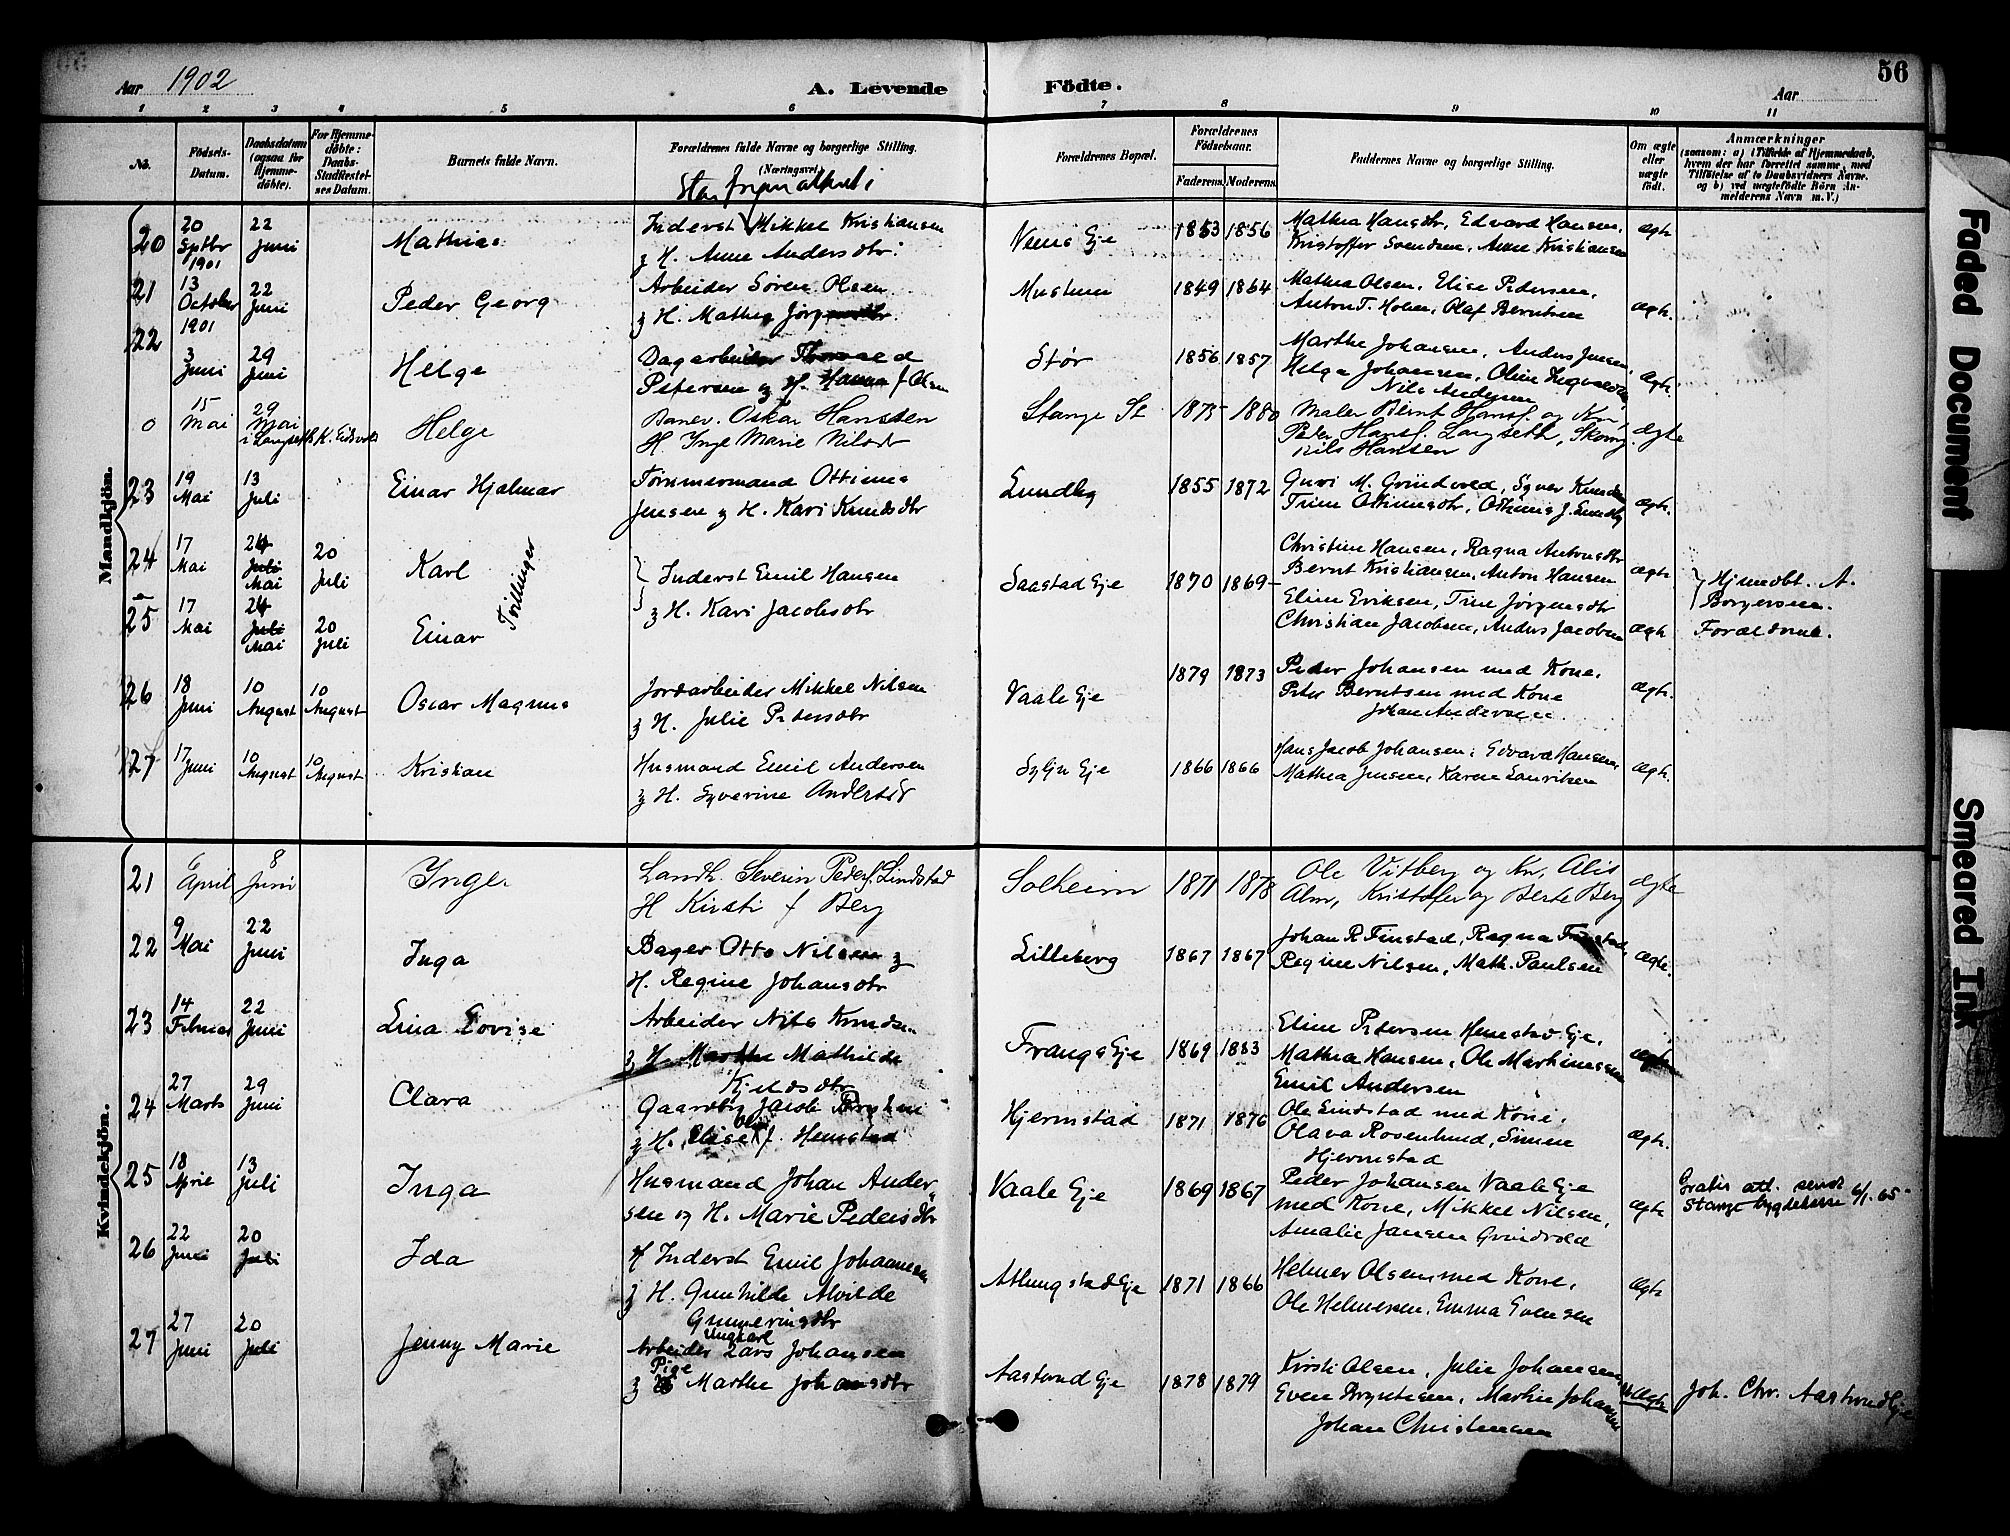 Aar 1902
A. Levende Födte.
56
Aar
1 2 3 4 5 6 7 8 9 10 11
No.
Födsels-Datum.
Daabsdatum (ogsaa for Hjemme-döbte).
For Hjemme-döbte: Daabs-Stadfæstel-ses Datum.
Barnets fulde Navn.
Forældrenes fulde Navne og borgerlige Stilling. (Næringsvei)
Forældrenes Bopæl.
Forældrenes Födselsaar.
Faderens. Moderens.
Faddernes Navne og borgerlige Stilling.
Om ægte eller uægte födt.
Anmærkninger
(saasom: a) i Tilfælde af Hjemmedaab,
hvem der har forrettet samme, med
Tilföielse af to Daabsvidners Navne.
og b) ved uægtefödte Börn An-
melderens Navn m. V.)
Mandkjön.
20 20 Sptbr 1901 22 Juni Mathias
Inderst Mikkel Kristiansen
og H. Anne Andersdtr.
Eje 1853 1856
Mathea Hansdtr, Edvard Hansen,
Kristoffer Svendsen, Anne Kristiansen
ægte
21 13 October 1901 22 Juni Peder Georg
Arbeider Sören Olsen
og H. Mathea Jörgensdtr.
1849 1864
Mathea Olsen, Elise Pedersen,
Anton T. Holen, Olaf Berntsen
ægte.
22 3 Juni 29 Juni Helge
Dagarbeider Thorvald
Petersen og H. Hanna f. Olsen
Stör 1856 1857
Marthe Johansen, Anders Jensen,
Helga Johansen, Oline
Nils Andersen
ægte.
0 15 Mai 29 Mai i Langset K. Eidsvold Helge
Banev. Oskar Hanssen
H. Inge Marie Nilsdr
Stange St 1875 1880
Maler Bernt Hansf. og Kon,
Peder Hansf. Langseth,
Nils Hansen
ægte
23 19 Mai 13 Juli Einar Hjalmar
Tömmermand Ottinius
Jensen og H. Kari Knudsdtr
Lundby 1855 1872
Guri M. Grindvold, Syver Knudsen
Trine Ottiniusdtr, Ottinius J. Lundby
ægte.
24 17 Mai 24 Juli Mai 20 Juli Karl
Tvillinger
Inderst Emil Hansen
og H. Kari Jacobsdtr
Saastad Eje 1870 1869
Christine Hansen, Ragna Antonsdtr
Bernt Kristiansen, Anton Hansen
ægte
Hjemdbt. A.
Borgersen.
25 17 Mai 24 Juli Mai 20 Juli Einar
Eline Eriksen, Trine Jörgensdtr
Christian Jacobsen, Anders Jacobsen
ægte
Forældrene.
26 18 Juni 10 August 10 August Oscar Magnus
Jordarbeider Mikkel Nilsen
og H. Julie Petersdtr
Vaale Eje 1879 1873
Peder Johansen med Kone.
Peter Berntsen med Kone
Johan Andersen.
ægte.
27 17 Juni 10 August 10 August Kristian
Husmand Emil Andersen
og H. Syverine Andersdr
Eje 1866 1866
Hans Jacob Johansen, Edvard Hansen,
Mathea Jensen, Karen Lauritsen
ægte.
Kvindekjön.
21 6 April 8 Juni Inger
Landh. Severin Pedersf. Lindstad
H Kirsti f Berg
Solheim 1871 1878
Ole Vitberg og Kn, Alis
Alm, Kristofer og Berte Berg
ægte
22 9 Mai 22 Juni Inga
Bager Otto Nilsen og
H. Regine Johansdtr
Lilleberg 1867 1867
Johan R Finstad, Ragna Finstad,
Regine Nilsen, Math. Paulsen
ægte.
23 14 Februar 22 Juni Lina Lovise
Arbeider Nils Knudsen
og H. Marthe Mathilde
Kjeldsdtr
Frangs Eje 1869 1883
Eline Petersen Hemstad Eje.
Mathea Hansen, Ole Martinussen
Emil Andersen
ægte
24 27 Marts 29 Juni Clara
Gaardbr Jacob
og H. Elise Ols f. Hemstad
Hjermstad 1871 1876
Ole Lindstad med Kone.
Olava Rosenlund, Simen
Hjermstad
ægte.
25 18 April 13 Juli Inga
Husmand Johan Ander-
sen og H. Marie Pedersdtr
Vaale Eje 1869 1867
Peder Johansen Vaale Eje
med Kone, Mikkel Nilsen,
Amalie Jansen Grindvold
ægte
Gratis att. sendt
Stange trygdekasse 6/1. 65
26 22 Juni 20 Juli Ida
H Inderst Emil Johannesen
og H. Gunhilde Alvilde
Gunneriusdtr
Atlungstad Eje 1871 1866
Helmer Olsen med Kone.
Ole Helmersen, Emma Evensen
ægte
27 27 Juni 20 Juli Jenny Marie
Ungkarl
Arbeider Lars Johansen
og Pige Marthe Johansdtr
Aastrud Eje 1878 1879
Kirsti Olsen, Julie Johansen,
Even Bryntesen, Martin Johansen
Johan Christensen
uægte
Joh. Chr. Aastrud Eje
Faded Document
Smeared Ink